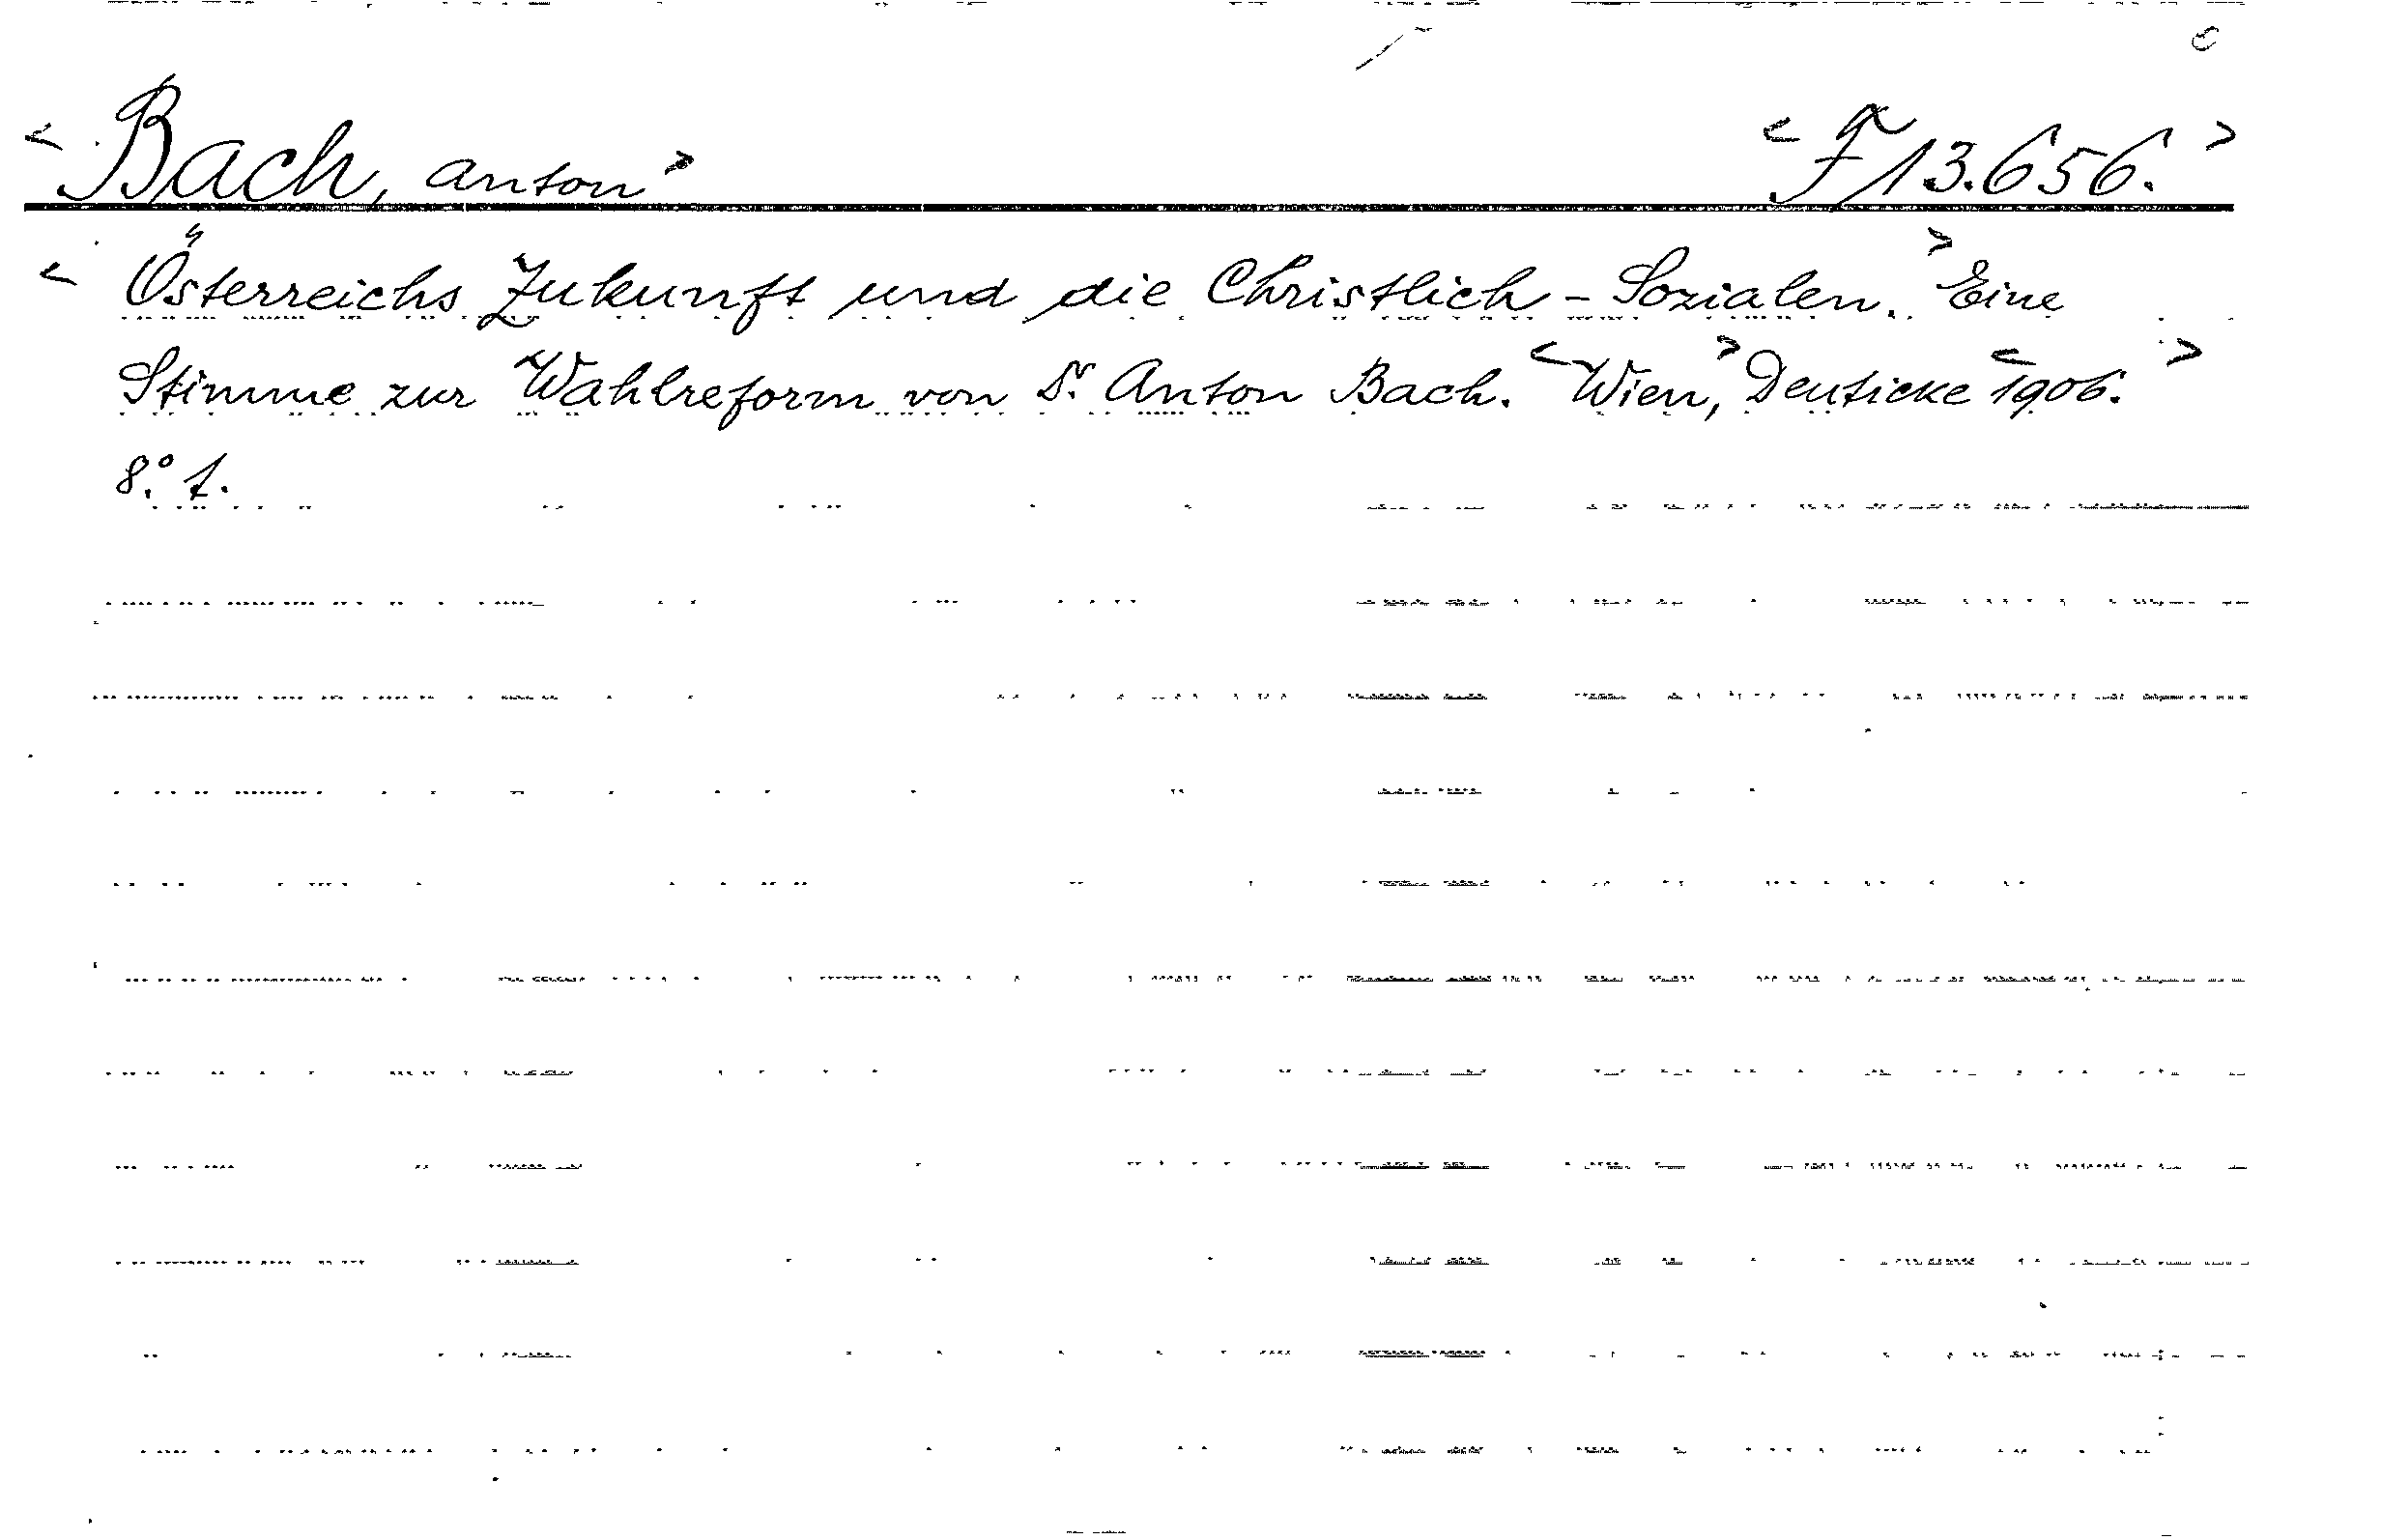 < Bach, Anton > < F 13.656. >
< Österreichs Zukunft und die Christlich-Sozialen. > Eine
Stimme zur Wahlreform von Dr. Anton Bach. < Wien, > Deuticke < 1906. >
8.° f.